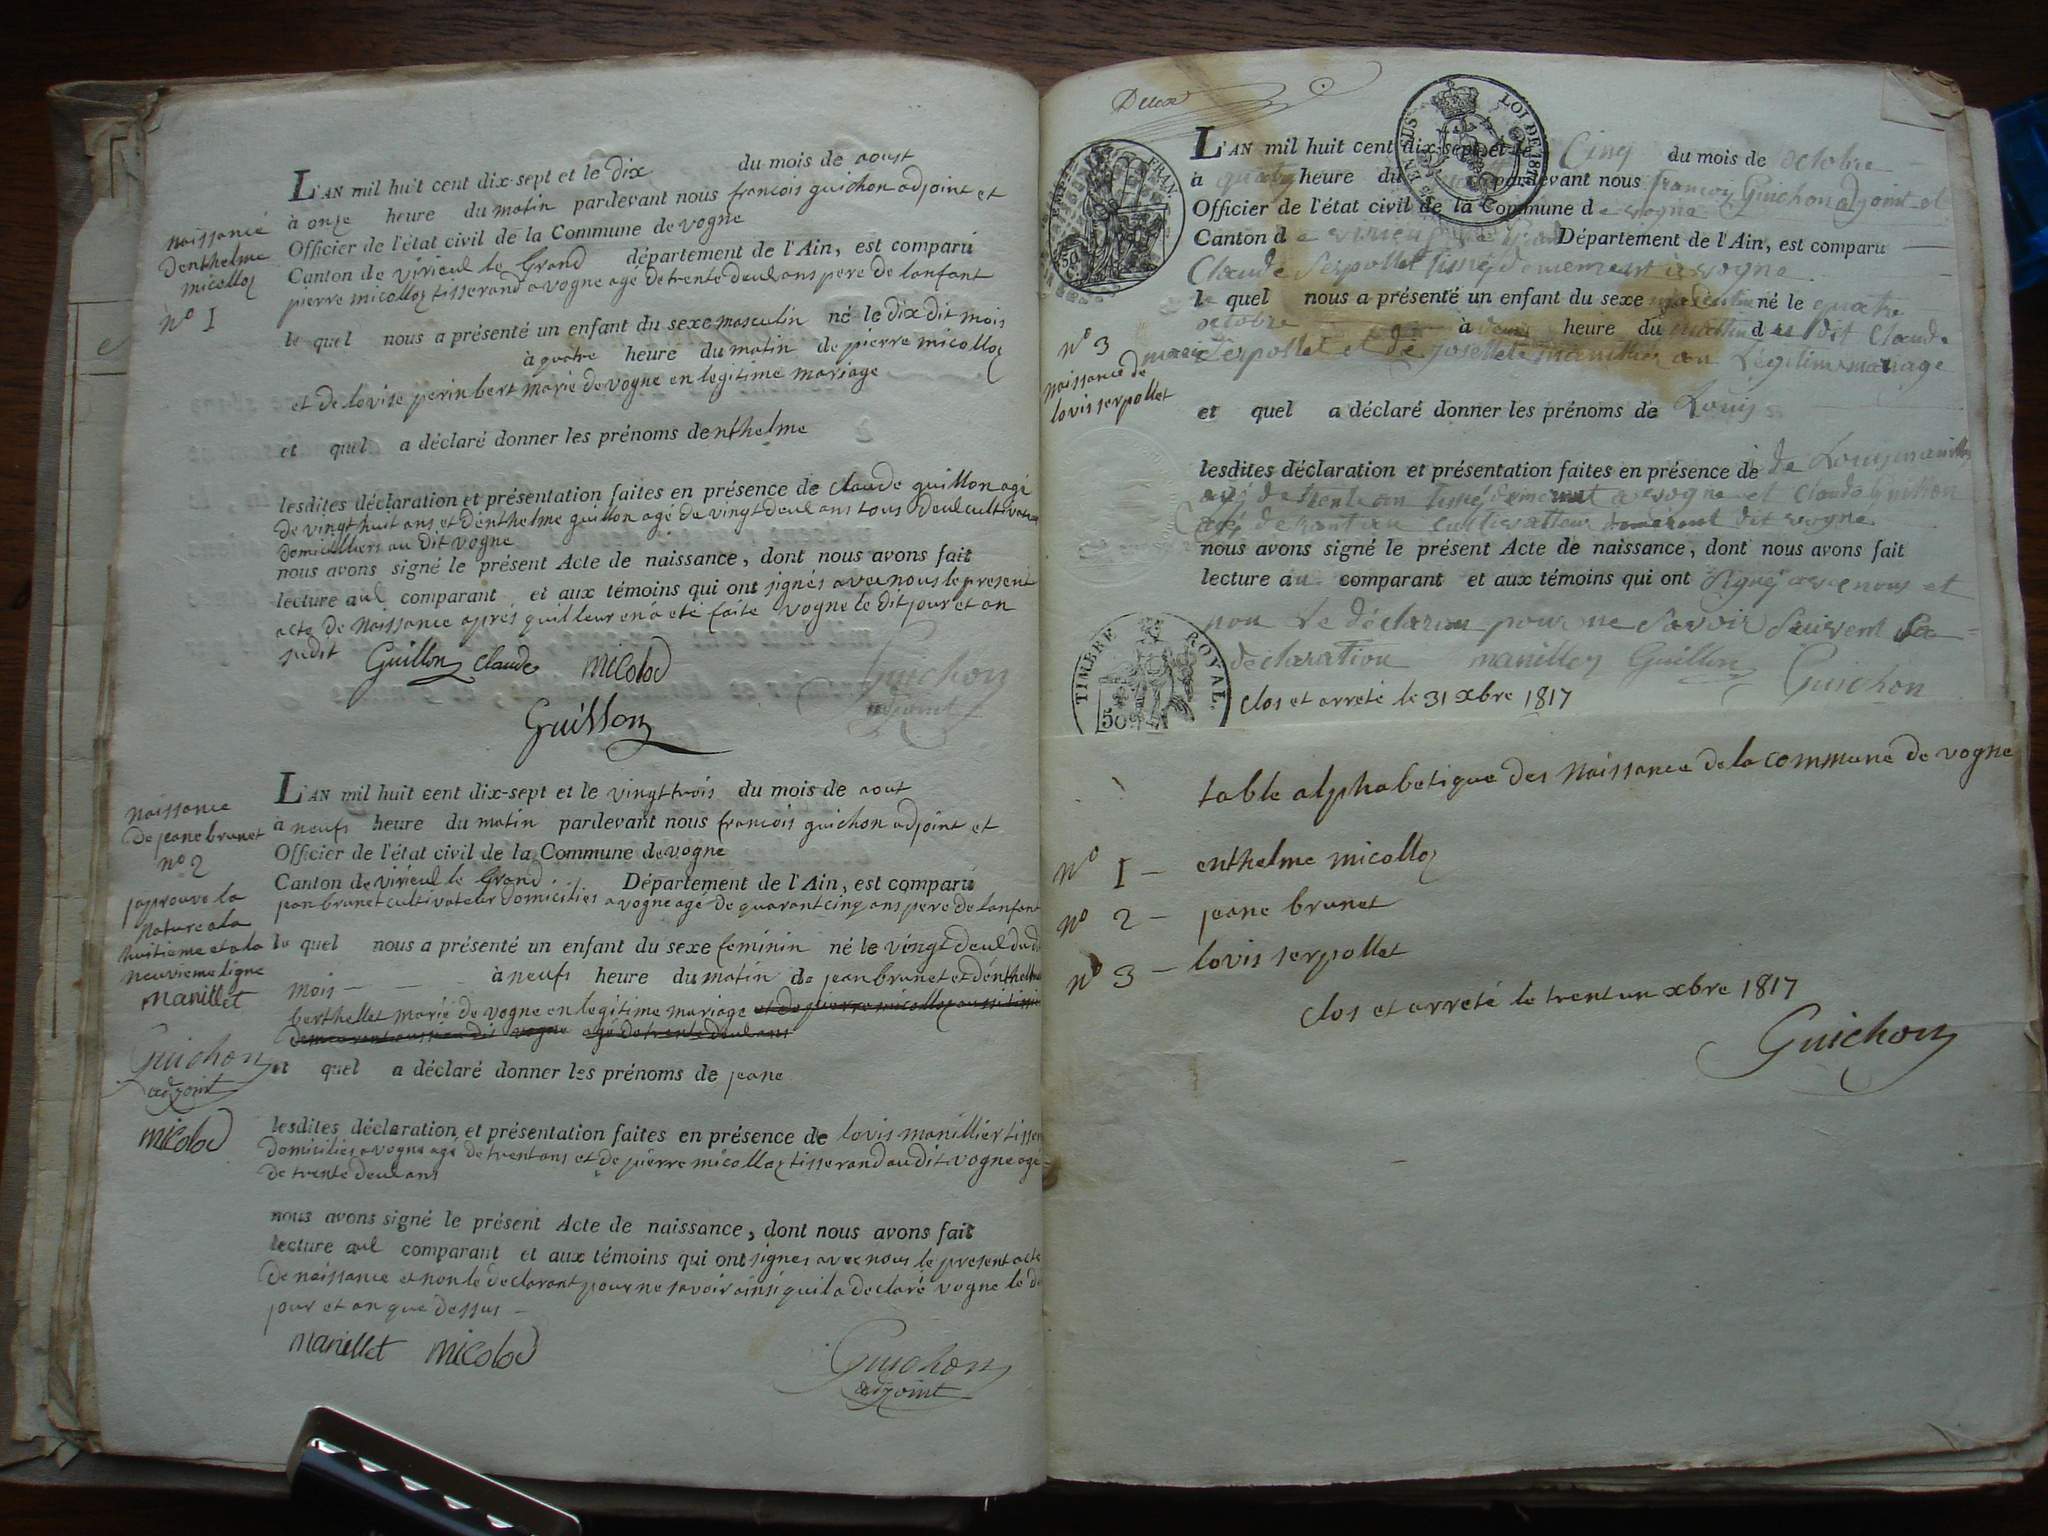 naissance
denthelme
micolloz
n° 1
L'AN mil huit cent dix-sept et le dix du mois de aoust
à onze heure du matin pardevant nous francois guichon adjoint et
Officier de l'état civil de la Commune de vogne
Canton de virieul le Grand département de l'Ain, est comparu
pierre micolloz tisserand a vogne agé de trente deul ans pere de lanfant
le quel nous a présenté un enfant du sexe masculin né le dix dit mois
à quatre heure du matin de pierre micolloz
et de lovise perin bert marié de vogne en legitime mariage
et quel a déclaré donner les prénoms denthelme
lesdites déclaration et présentation faites en présence de claude guillon agé
de vingt huit ans et denthelme guillon agé de vingt deul ans tous deul cultivateur
domicilliers au dit vogne
nous avons signé le présent Acte de naissance, dont nous avons fait
lecture aul comparant et aux témoins qui ont signés avec nous le present
acte de naissance aprés quilleur en à eté faite vogne le dit jour et an
sudit
Guillon claude micolod Guichon
adjoint
Guillon
naissance
de jeane brunet
n° 2
japrouve la
rature a la
huitieme et a la
neuvieme ligne
manillet
Guichon
adjoint
micolod
L'AN mil huit cent dix-sept et le vingt trois du mois de aout
à neufs heure du matin pardevant nous francois guichon adjoint et
Officier de l'état civil de la Commune de vogne
Canton de virieul le Grand Département de l'Ain, est comparu
jean brunet cultivateur domiciliés a vogne agé de quarant cinq ans pere de lanfant
le quel nous a présenté un enfant du sexe feminin né le vingt deul du d
mois à neufs heure du matin de jean brunet et denthelme
berthellet marié de vogne en legitime mariage et de pierre micolloz aussi tisse
demeurent aussi au dit vogne agé de trente deul ans
et quel a déclaré donner les prénoms de jeane
lesdites déclaration et présentation faites en présence de lovis manillier tisser
domiciliés a vogne agé de trent ans et de pierre micolloz tisserand au dit vogne agé
de trente deul ans
nous avons signé le présent Acte de naissance, dont nous avons fait
lecture aul comparant et aux témoins qui ont signes avec nous le present acte
de naissance et non le declarant pour ne savoir ainsi quil a declaré vogne le d
jour et an que dessus
manillet micolod Guichon
adjoint
Deux
LOI DE 1816
EMPIRE FRAN.
50
L'AN mil huit cent dix-sept et le Cinq du mois de octobre
à quatre heure du pardevant nous francoy Guichon adjoint et
Officier de l'état civil de la Commune de vogne
Canton de virieu Département de l'Ain, est comparu
Claude Serpollet demeurant à vogne
le quel nous a présenté un enfant du sexe masculin né le quatre
octobre à heure du mattin de dit Claude
n° 3
naissance de
lovis serpollet
marie Serpollet et de josellete manillier an Légitime mariage
et quel a déclaré donner les prénoms de Louis
lesdites déclaration et présentation faites en présence de de Louy manillier
agé de trente an demerant a vogne et Claude Guillon
agé de cultivatteur demerant dit vogne
nous avons signé le présent Acte de naissance, dont nous avons fait
lecture au comparant et aux témoins qui ont signéz avec nous et
non le déclaran pour ne Savoir Suivent Sa
declaration manillez Guillon Guichon
TIMBRE ROYAL.
50
clos et arreté le 31 xbre 1817
table alphabetique des naissance de la commune de vogne
n° 1 — enthelme micolloz
n° 2 — jeane brunet
n° 3 — lovis serpollet
clos et arreté le trent un xbre 1817
Guichon